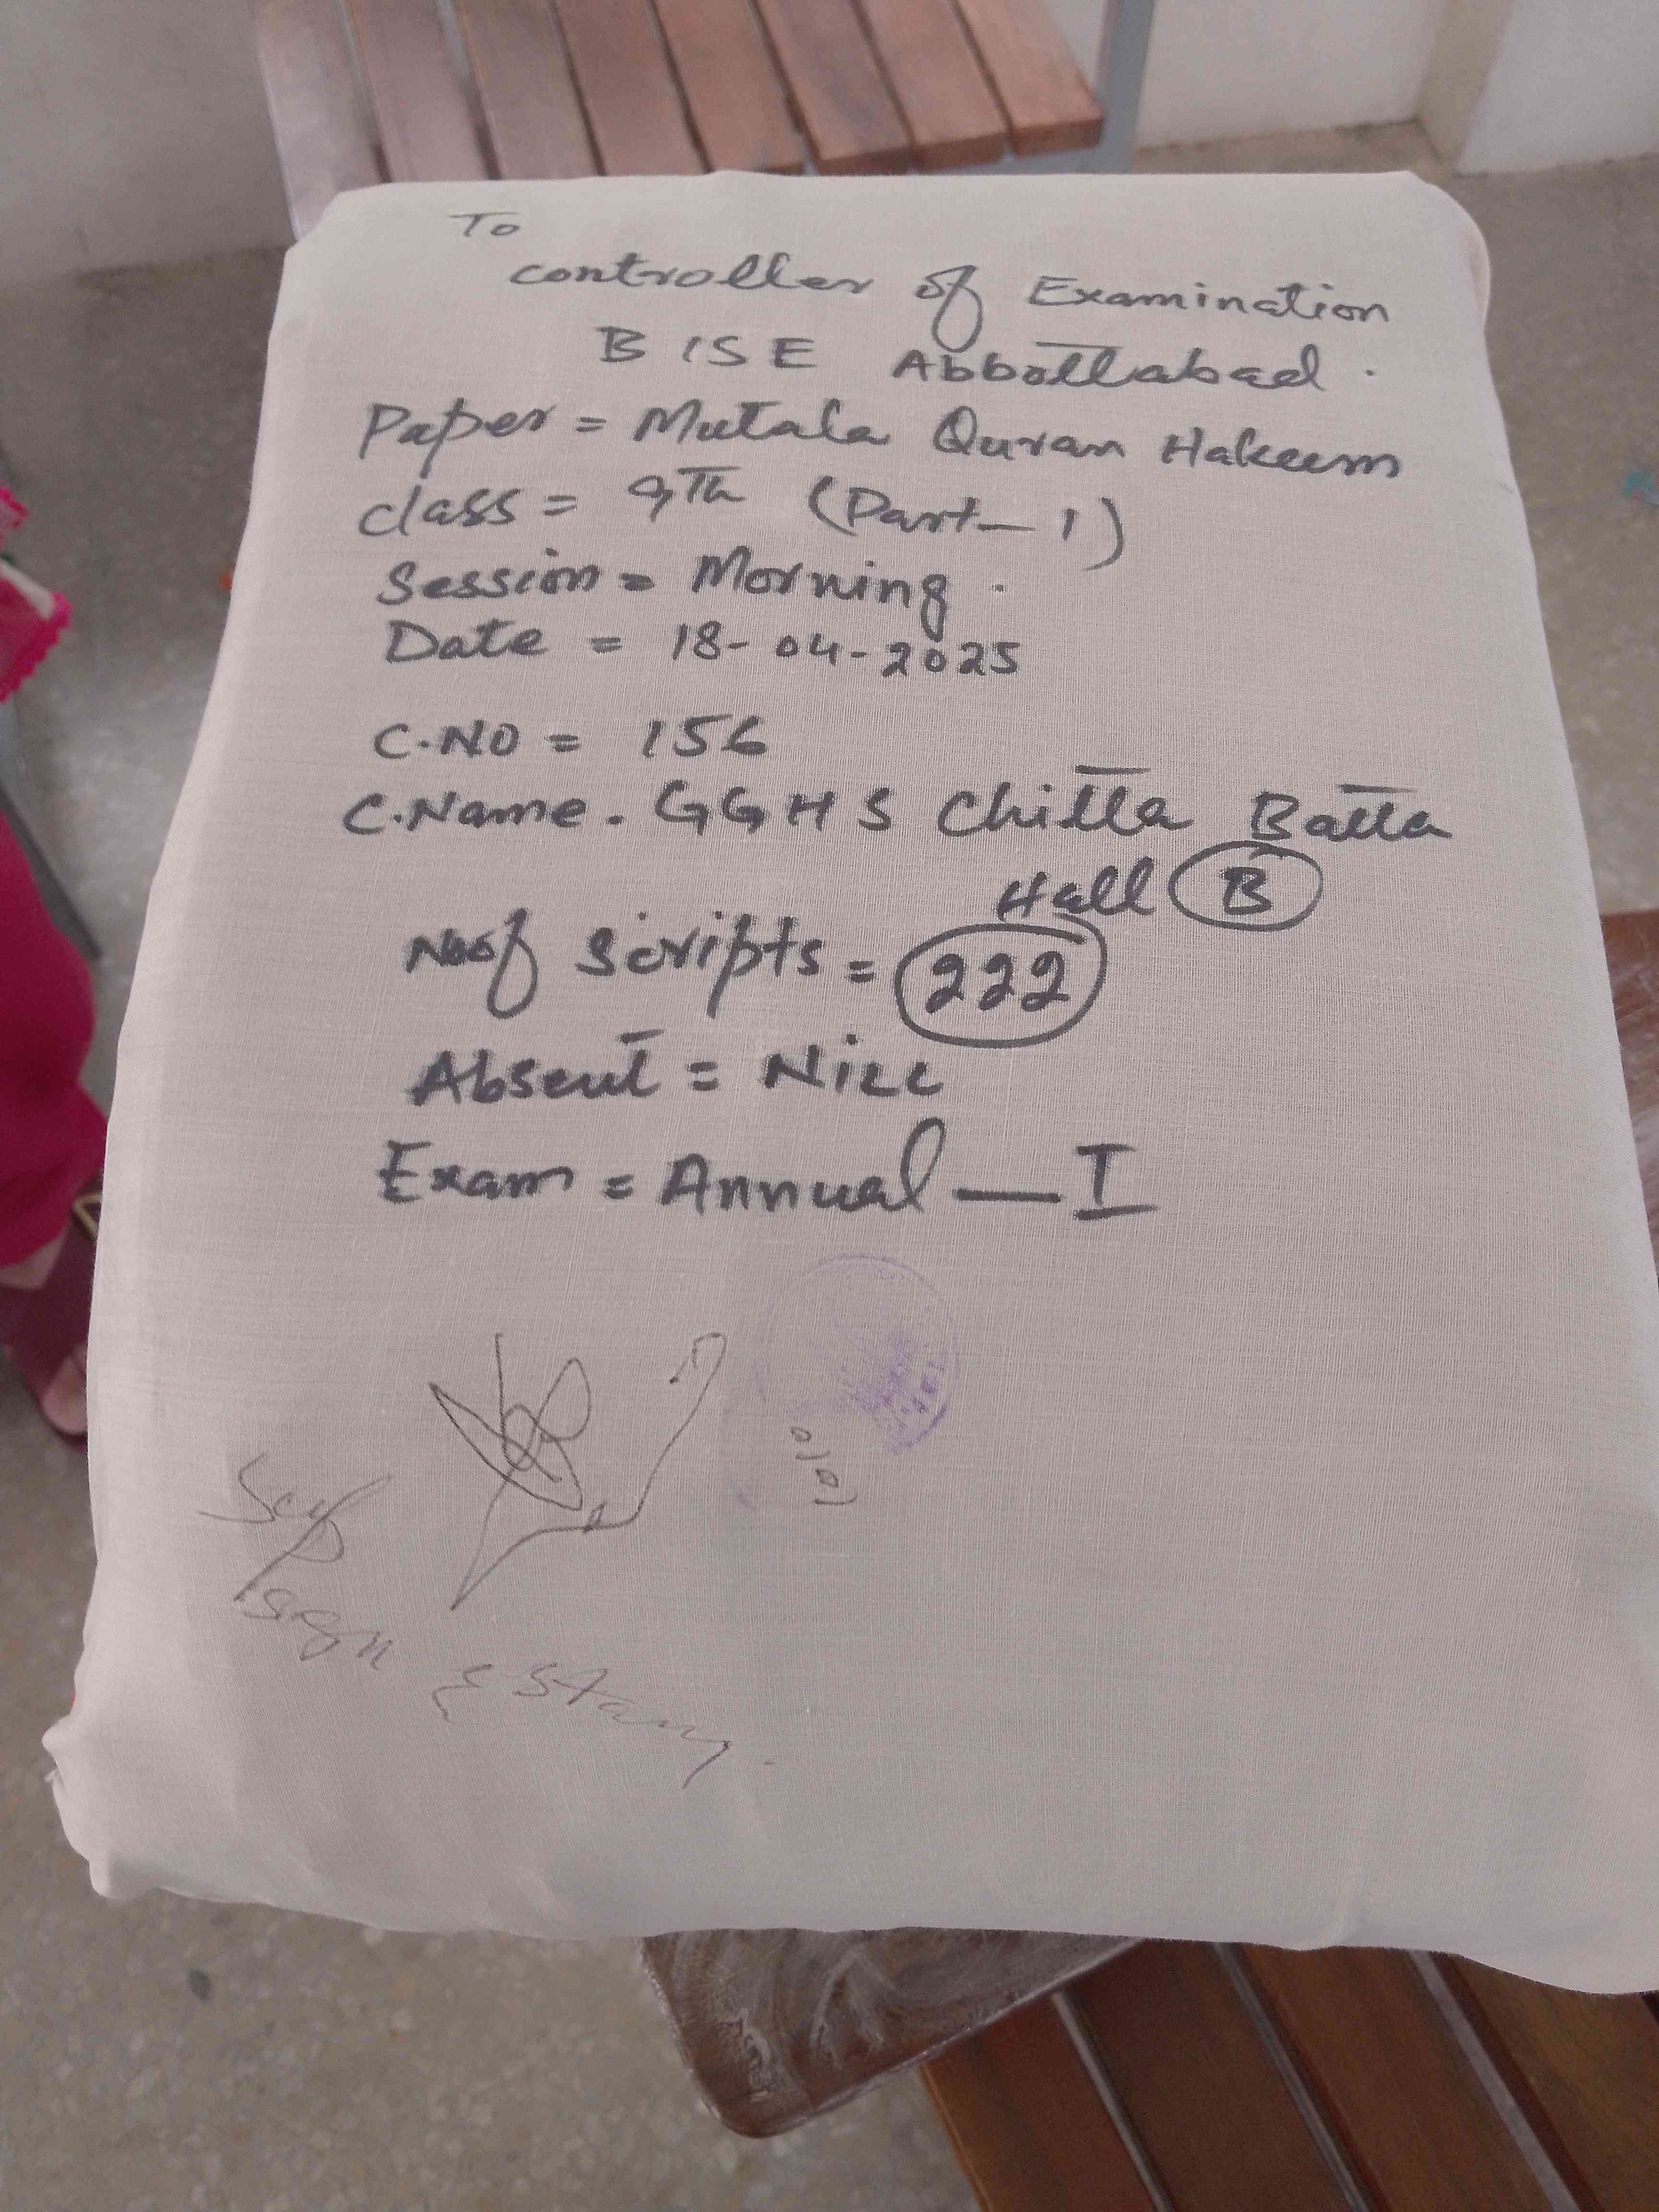 To
controller of Examination
BISE Abbottabad.
Paper = Mutala Quran Hakeem
class = 9Th (Part-1)
Session = Morning.
Date = 18-04-2025
C.NO = 156
C.Name. GGHS Chitta Batta
Hall B
No of Scripts = 222
Absent = Nill
Exam = Annual — I
sign & Stamp.